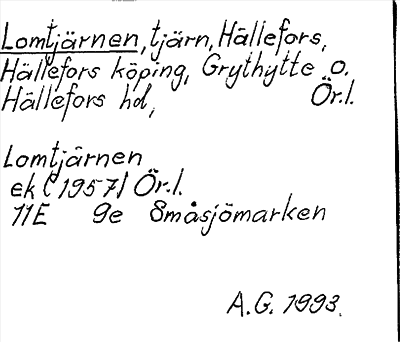 Lomtjärnen, tjärn, Hällefors,
Hällefors köping, Grythytte o.
Hällefors hd, Ör.l.
Lomtjärnen
ek (1957) Ör.l.
11E 9e Småsjömarken
A.G. 1993.